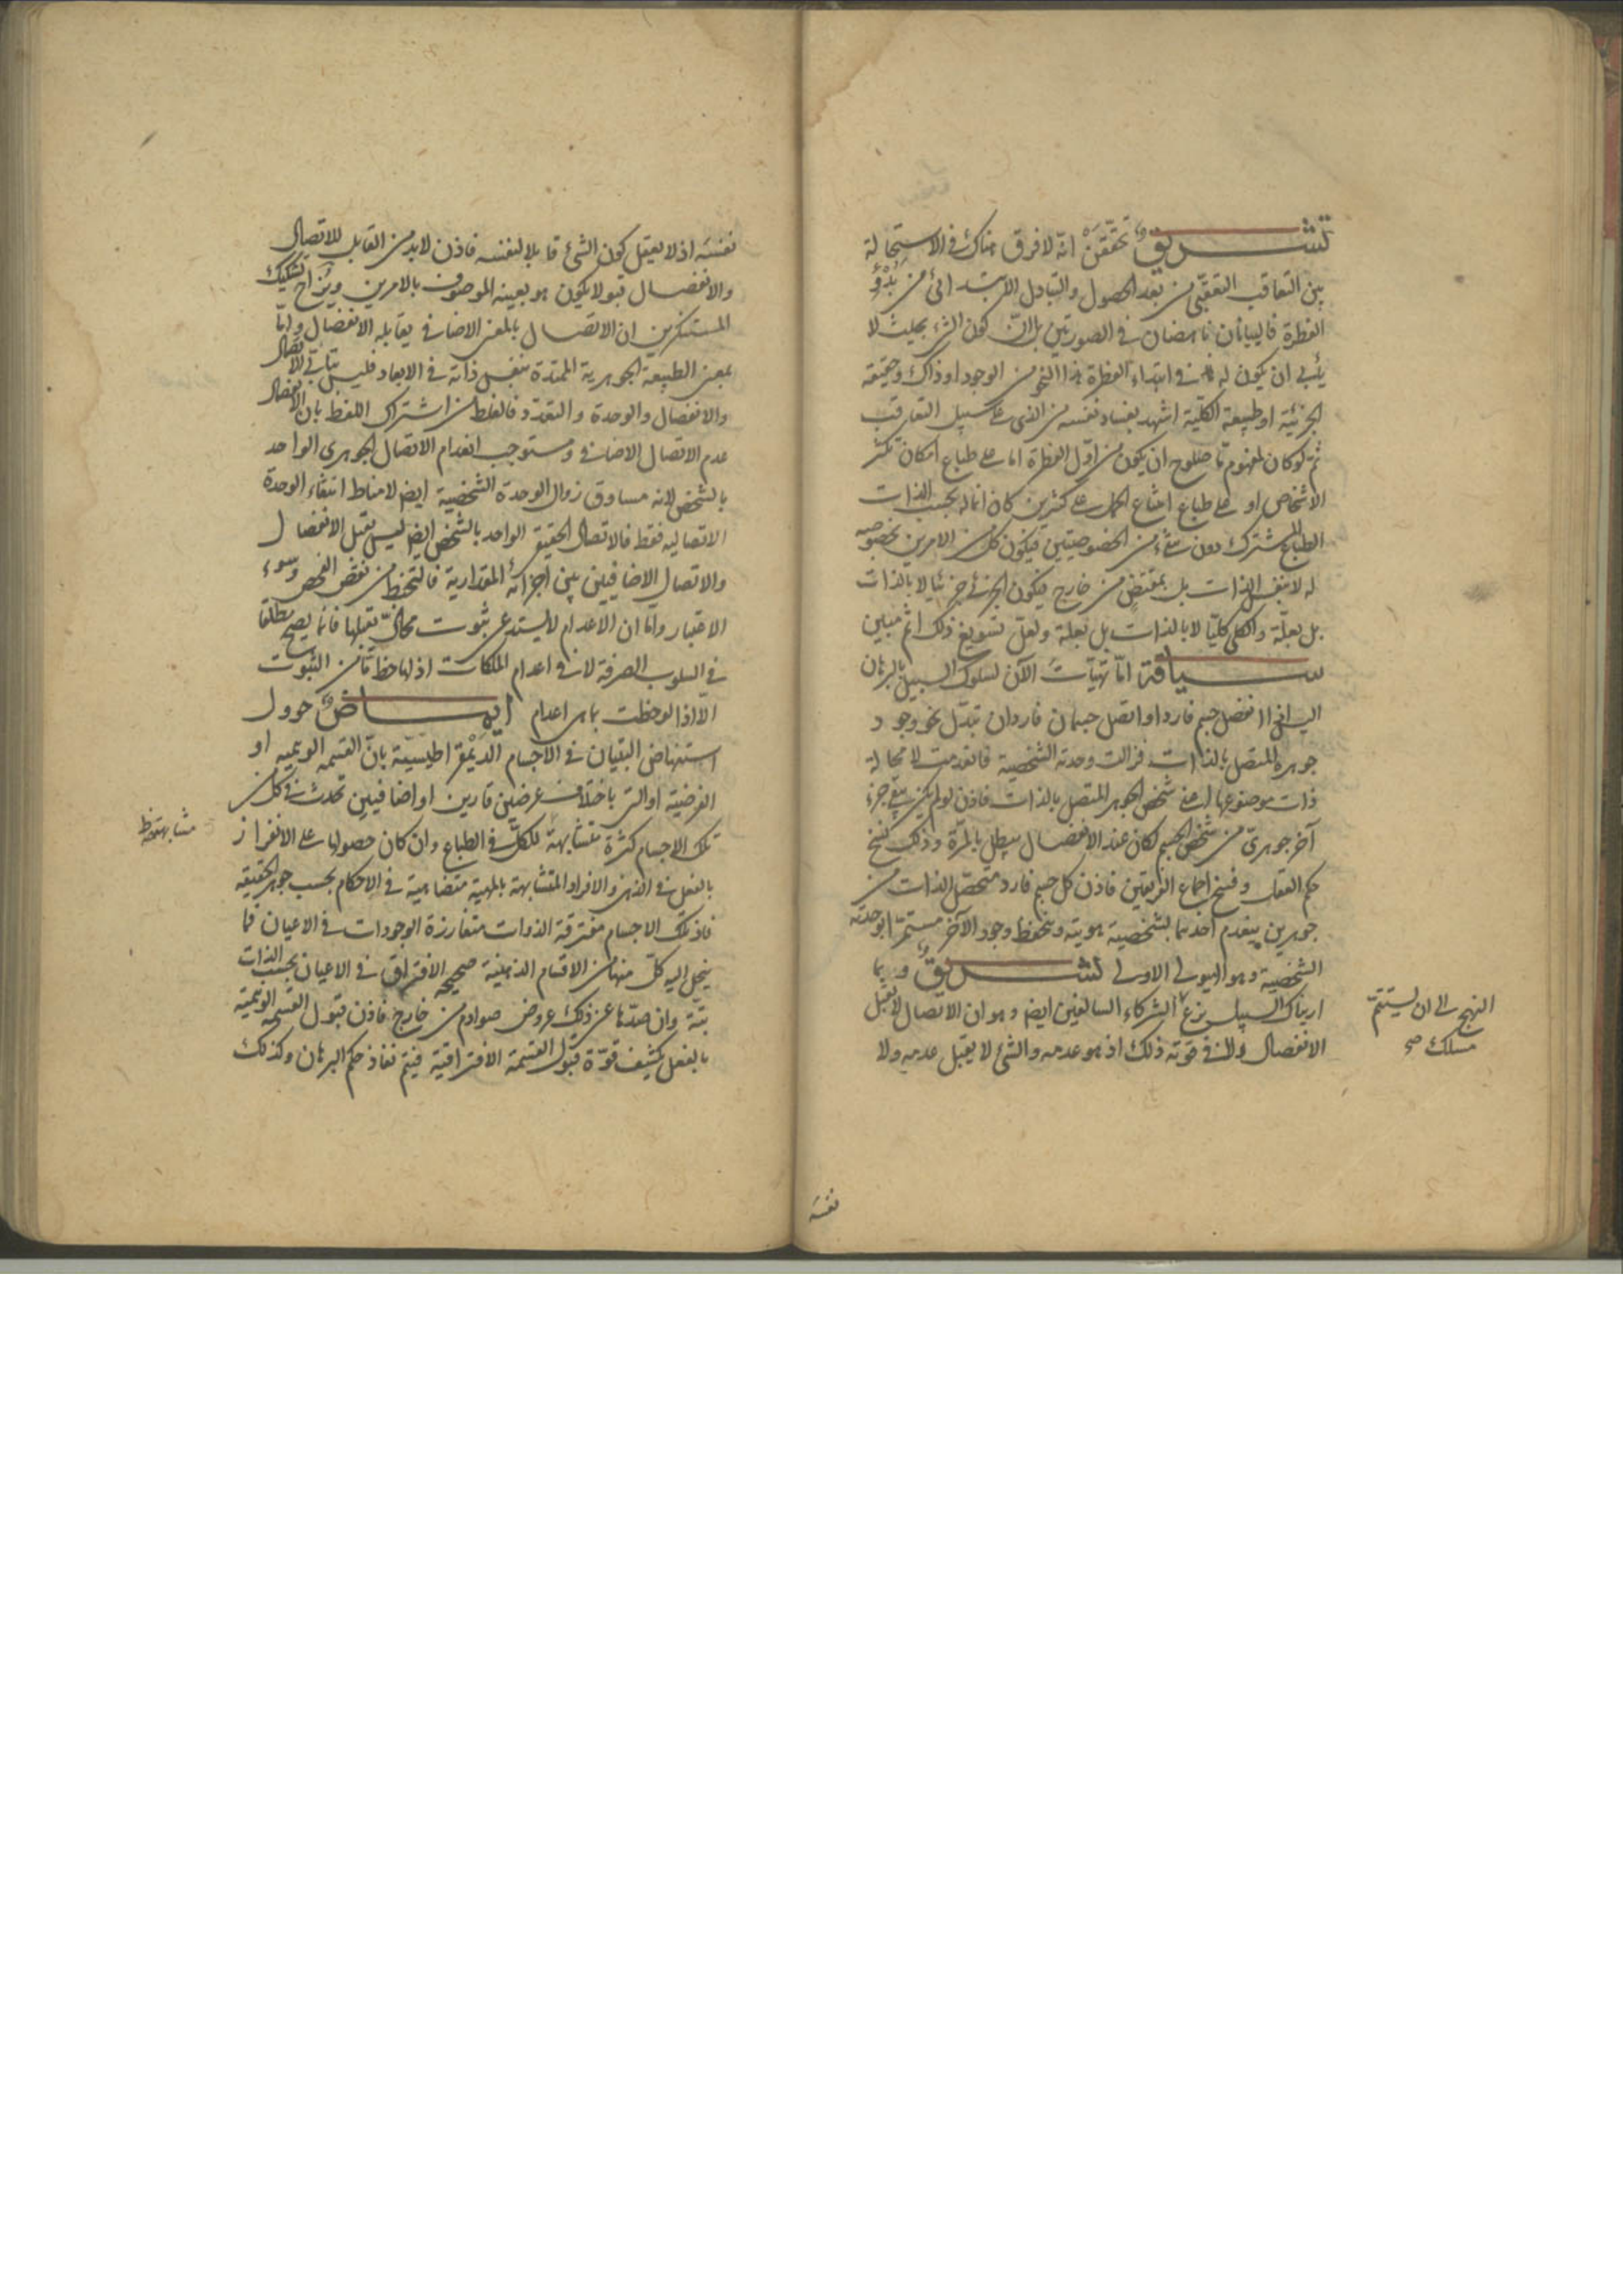 تشريق تحققن انه لا فرق هناك في الاستحالة
بين التعاقب التعقبي من بعد الحصول والتبادل الابتدائي من بدؤ
الفطرة فالبيانان ناهضان في الصورتين بل ان كون الشئ بحيث لا
يأبى ان يكون له في ابتداء الفطرة هذا النحو من الوجود او ذاك وحقيقته
الجزئية او طبيعة الكلية اشهد بفساد نفسه من الذى على سبيل التعاقب
ثم لو كان لمفهوم ما صلوح ان يكون من اول الفطرة اما على طباع امكان تكثر
الاشخاص او على طباع امتناع الحمل على كثيرين كان انما له بحسب الذات
الطباع المشترك دون شئ من الخصوصيتين فيكون كل من الامرين بخصوصه
له لا بنفس الذات بل بمقتض من خارج فيكون الجزئي جزئيا لا بالذات
بل بعلة والكلى كليا لا بالذات بل بعلة ولعل تسويغ ذلك اثم مبين
سياقة اما تهيأت الآن لسلوك السبيل بالبرهان
اليس اذا انفصل جسم فارد او اتصل جسمان فاردان تبدل نحو وجود
جوهره المتصل بالذات فزالت وحدته الشخصية فانعدمت لا محالة
ذات موضوعها اعنى شخص الجوهر المتصل بالذات فاذن لو لم يكن يبقى جزء
آخر جوهرى من شخص الجسم لكان عند الانفصال يبطل بالمرة وذلك فسخ
حكم العقل وفسخ اجماع الفريقين فاذن كل جسم فارد متحصل الذات من
جوهرين ينعدم احدهما بشخصية هويته وينحفظ وجود الآخر مستمرا بوحدته
الشخصية وهو الهيولى الاولى تشريق وربما
اريناك السبيل بزع الشركاء السالفين ايضا وهو ان الاتصال لا يقبل
الانفصال ولا في قوته ذلك اذ هو عدمه والشئ لا يقبل عدمه ولا
النهج الى ان يستتم
مسلك صح
نفسه
نفسه اذ لا يعقل كون الشئ قابلا لنفسه فاذن لابد من القابل للاتصال
والانفصال قبولا يكون هو بعينه الموصوف بالامرين ويزاح تشكيك
المستنكرين ان الاتصال بالمعنى الاضافى يقابله الانفصال واما
بمعنى الطبيعة الجوهرية الممتدة بنفس ذاته في الابعاد فليس يتأتى الاتصال
والانفصال والوحدة والتعدد فالغلط من اشتراك اللفظ بان الانفصال
عدم الاتصال الاضافى ومستوجب انعدام الاتصال الجوهرى الواحد
بالشخص لانه مساوق زوال الوحدة الشخصية ايضا لا مناط انتفاء الوحدة
الاتصالية فقط فالاتصال الحقيقى الواحد بالشخص ايضا ليس يقبل الانفصال
والاتصال الاضافيين بين اجزائه المقدارية فالتحفظ من نقض الفحص وسوء
الاعتبار واما ان الاعدام لا يستدعى ثبوت محال تقبلها فانما يصح مطلقا
في السلوب الصرفة لا في اعدام الملكات اذ لها حظ ما من الثبوت
الا اذا لوحظت بما هى اعدام ايماض حوول
استنهاض البنيان في الاجسام الديمقراطيسية بان القسمة الوهمية او
الفرضية او التى باختلاف عرضين قارين او اضافيين تحدث في كل من
تلك الاجسام كثرة متشابهة للكل في الطباع وان كان حصولها على الانفراز
بالفعل في الذهن والافراد المتشابهة بالمهية متضاهية في الاحكام بحسب جوهر الحقيقة
فاذ تلك الاجسام مفترقة الذوات متفارزة الوجودات في الاعيان فما
ينحل اليه كل منها من الاقسام الذهنية صحيحة الافتراق في الاعيان بحسب الذات
بتة وان صدها عن ذلك عروض صوادم من خارج فاذن قبول القسمة الوهمية
بالفعل يكشف قوة قبول القسمة الافتراقية فيتم نفاذ حكم البرهان وكذلك